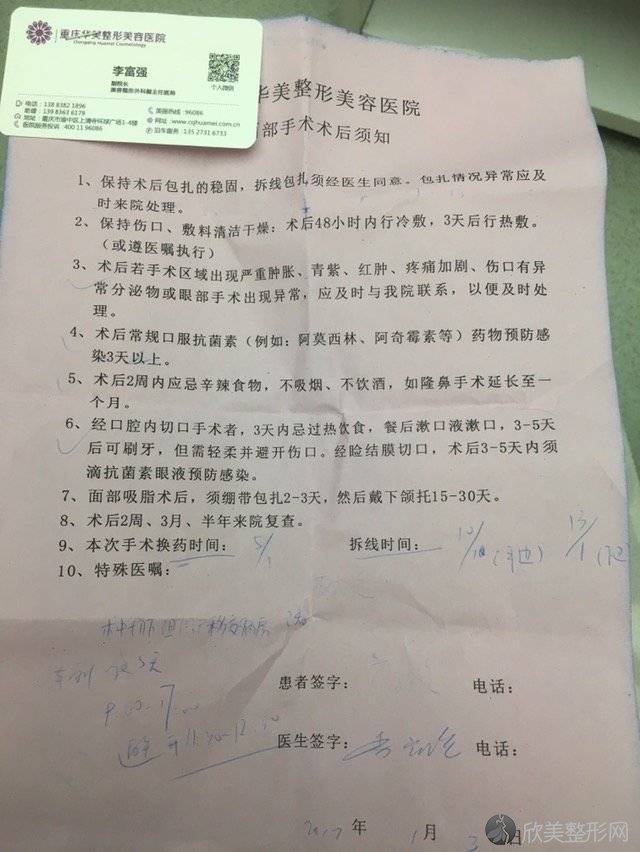 重庆华美整形美容医院
Chongqing Huamei Cosmetology
李富强
副院长
美容整形外科副主任医师
个人微信
电话：138 8382 1896
助理：139 8363 6179
地址：重庆市渝中区上清寺环球广场1-4楼
医院服务投诉：400 11 96086
美丽热线：96086
www.cqhuamei.com.cn
泊车服务：135 2731 6733
华美整形美容医院
部手术术后须知
1、保持术后包扎的稳固，拆线包扎须经医生同意。包扎情况异常应及
时来院处理。
2、保持伤口、敷料清洁干燥：术后48小时内行冷敷，3天后行热敷。
（或遵医嘱执行）
3、术后若手术区域出现严重肿胀、青紫、红肿、疼痛加剧、伤口有异
常分泌物或眼部手术出现异常，应及时与我院联系，以便及时处
理。
4、术后常规口服抗菌素（例如：阿莫西林、阿奇霉素等）药物预防感
染3天以上。
5、术后2周内应忌辛辣食物，不吸烟、不饮酒，如隆鼻手术延长至一
个月。
6、经口腔内切口手术者，3天内忌过热饮食，餐后漱口液漱口，3-5天
后可刷牙，但需轻柔并避开伤口。经睑结膜切口，术后3-5天内须
滴抗菌素眼液预防感染。
7、面部吸脂术后，须绷带包扎2-3天，然后戴下颌托15-30天。
8、术后2周、3月、半年来院复查。
9、本次手术换药时间：5/1 拆线时间：
10、特殊医嘱：
患者签字： 电话：
9:00-17:00
避开11:30-12:30
医生签字： 电话：
2017年 1月 3日
欣美整形网